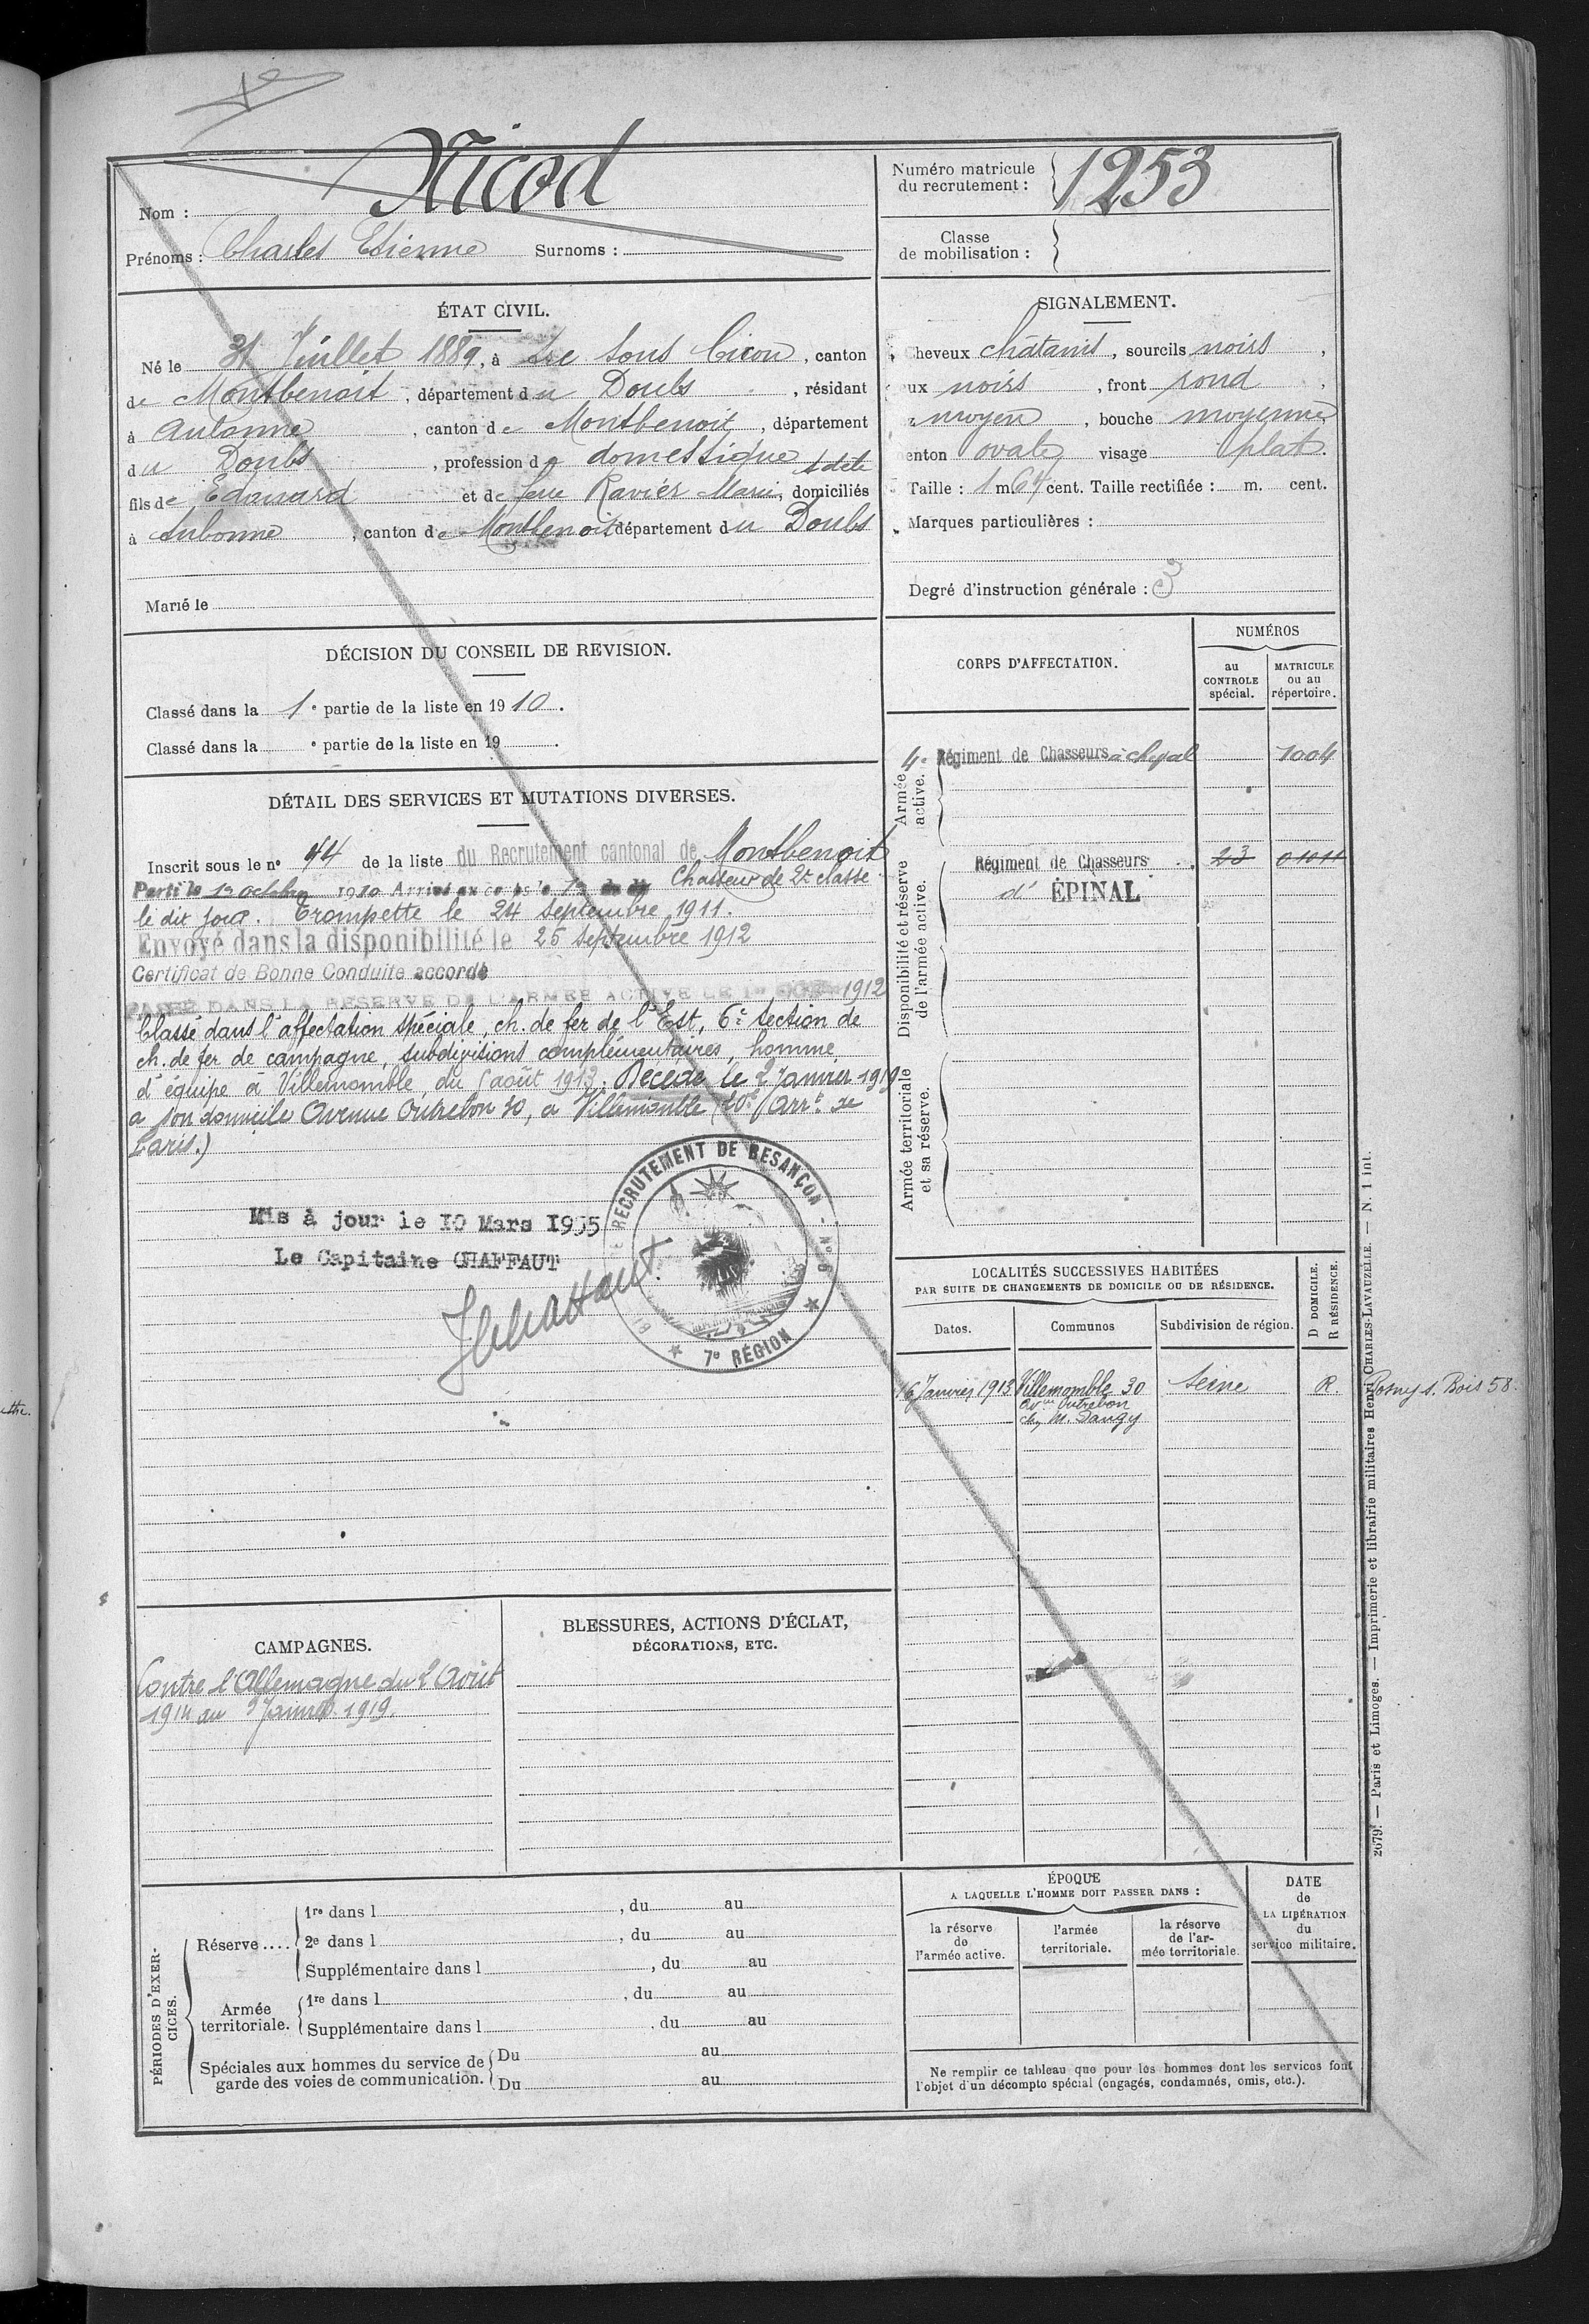 Nom : Nicod
Prénoms : Charles Etienne Surnoms :
Numéro matricule
du recrutement : 1253
Classe
de mobilisation :
ÉTAT CIVIL.
Né le 31 Juillet 1889, à Arc sous Cicon, canton
de Montbenoit, département du Doubs, résidant
à Aubonne, canton de Montbenoit, département
du Doubs, profession de domestique
fils de Edouard et de feue Ravier Marie Adèle, domiciliés
à Aubonne, canton de Montbenoit département du Doubs
Marié le
SIGNALEMENT.
Cheveux châtains, sourcils noirs,
eux noirs, front rond,
moyen, bouche moyenne
enton ovale visage plat.
Taille : 1 m 64 cent. Taille rectifiée : m. cent.
Marques particulières :
Degré d'instruction générale : 3
DÉCISION DU CONSEIL DE REVISION.
Classé dans la 1e partie de la liste en 1910.
Classé dans la e partie de la liste en 19 .
DÉTAIL DES SERVICES ET MUTATIONS DIVERSES.
Inscrit sous le n° 44 de la liste du Recrutement cantonal de Montbenoit
Parti le 1er octobre 1910 Arrivé au corps le 1er du dit Chasseur de 2e classe
le dit jour. Trompette le 24 septembre 1911.
Envoyé dans la disponibilité le 25 septembre 1912
Certificat de Bonne Conduite accordé
PASSÉ DANS LA RÉSERVE DE L'ARMÉE ACTIVE LE 1er 1912
Classé dans l'affectation spéciale, ch. de fer de l'Est, 6e section de
ch. de fer de campagne, subdivisions complémentaires, homme
d'équipe à Villemomble, du 5 août 1913. Décédé le 2 Janvier 1919
à son domicile Avenue Outrebon 30, à Villemomble (20e Arrt de
Paris.)
Mis à jour le 10 Mars 1935
Le Capitaine CHAFFAUT
RECRUTEMENT DE BESANÇON
7e RÉGION
CORPS D'AFFECTATION.
NUMÉROS
au
CONTROLE
spécial.
MATRICULE
ou au
répertoire.
Armée
active.
4e Régiment de Chasseurs à cheval 1004
Disponibilité et réserve
de l'armée active.
Régiment de Chasseurs 23 01011
d' ÉPINAL
Armée territoriale
et sa réserve.
LOCALITÉS SUCCESSIVES HABITÉES
PAR SUITE DE CHANGEMENTS DE DOMICILE OU DE RÉSIDENCE.
Dates.
Communes
Subdivision de région.
D DOMICILE.
R RÉSIDENCE.
16 Janvier 1913 Villemomble 30 Seine R. Rosny s. Bois 58.
Avue Outrebon
chez M. Dangy
CAMPAGNES.
Contre l'Allemagne du 2 Août
1914 au 2 Janvier 1919.
BLESSURES, ACTIONS D'ÉCLAT,
DÉCORATIONS, ETC.
PÉRIODES D'EXER-
CICES.
Réserve....
1re dans l , du au
2e dans l , du au
Supplémentaire dans l , du au
Armée
territoriale.
1re dans l , du au
Supplémentaire dans l , du au
Spéciales aux hommes du service de
garde des voies de communication.
Du au
Du au
ÉPOQUE
A LAQUELLE L'HOMME DOIT PASSER DANS :
la réserve
de
l'armée active.
l'armée
territoriale.
la réserve
de l'ar-
mée territoriale.
DATE
de
LA LIBÉRATION
du
service militaire.
Ne remplir ce tableau que pour les hommes dont les services font
l'objet d'un décompte spécial (engagés, condamnés, omis, etc.).
2679. — Paris et Limoges. — Imprimerie et librairie militaires Henri CHARLES-LAVAUZELLE. — N. 1 int.